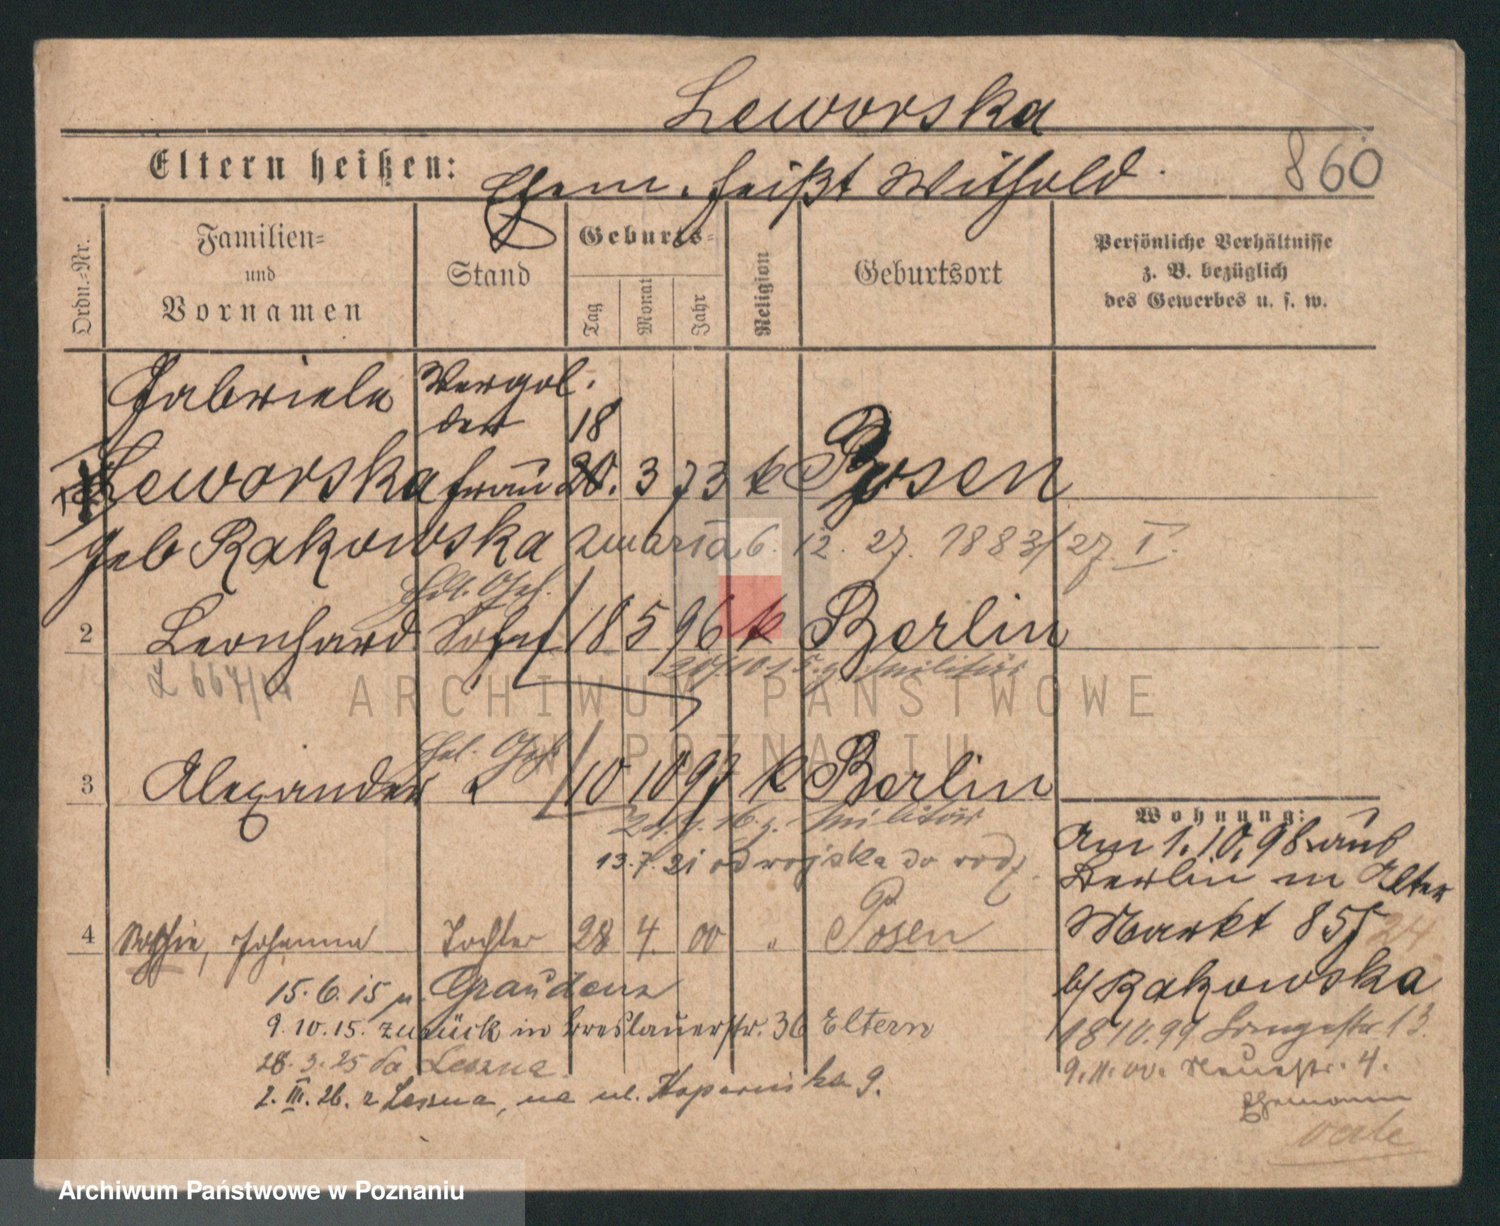 Leworska
Eltern heißen: Ehem. heißt Withold.
860
Ordn.=Nr.
Familien=
und
Vornamen
Stand
Geburts=
Tag
Monat
Jahr
Religion
Geburtsort
Persönliche Verhältnisse
z. B. bezüglich
des Gewerbes u. s. w.
Gabriele Vergol.
der 18
Leworska frau 20. 3 73 k Posen
geb Rakowska zmarła 6. 12. 27. 1883/27 I.
2 Leonhard Sohn 18 5 96 k Berlin
15. z. Militär
Alexander
3 10 10 97 k Berlin
16. z. Militär
13.7.21 od wojska do rodz.
4 Sophie, Johanna Tochter 28 4. 00 " Posen
Wohnung:
Am 1.10.98 aus
Berlin in Alter
Markt 85
24
b/Rakowska
18 10.99 Langestr. 13.
9.11.00. Neuestr. 4.
Ehemann
15.6.15 n. Graudenz
9.10.15. zurück in Breslauerstr. 36 Eltern
28.3.25 do Leszna
2. III. 26. z Leszna, na ul. Kopernika 9.
ARCHIWUM PAŃSTWOWE
W POZNANIU
Archiwum Państwowe w Poznaniu